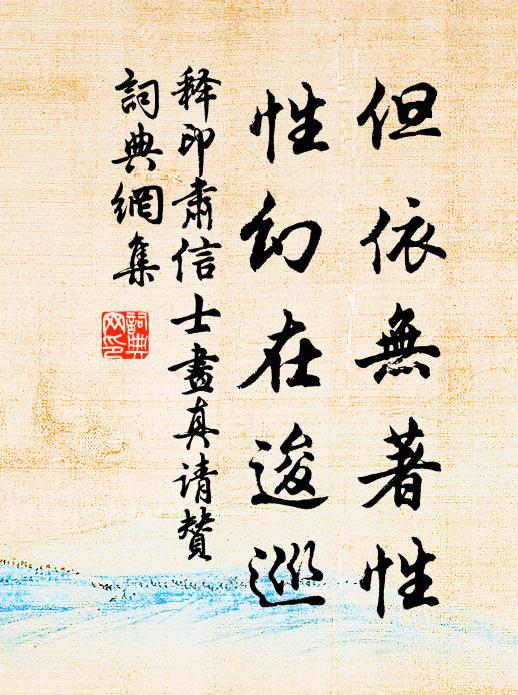 但依無著性
性幻在逡巡
释印肅信士畫真请贊
詞典網集
詞典
网印